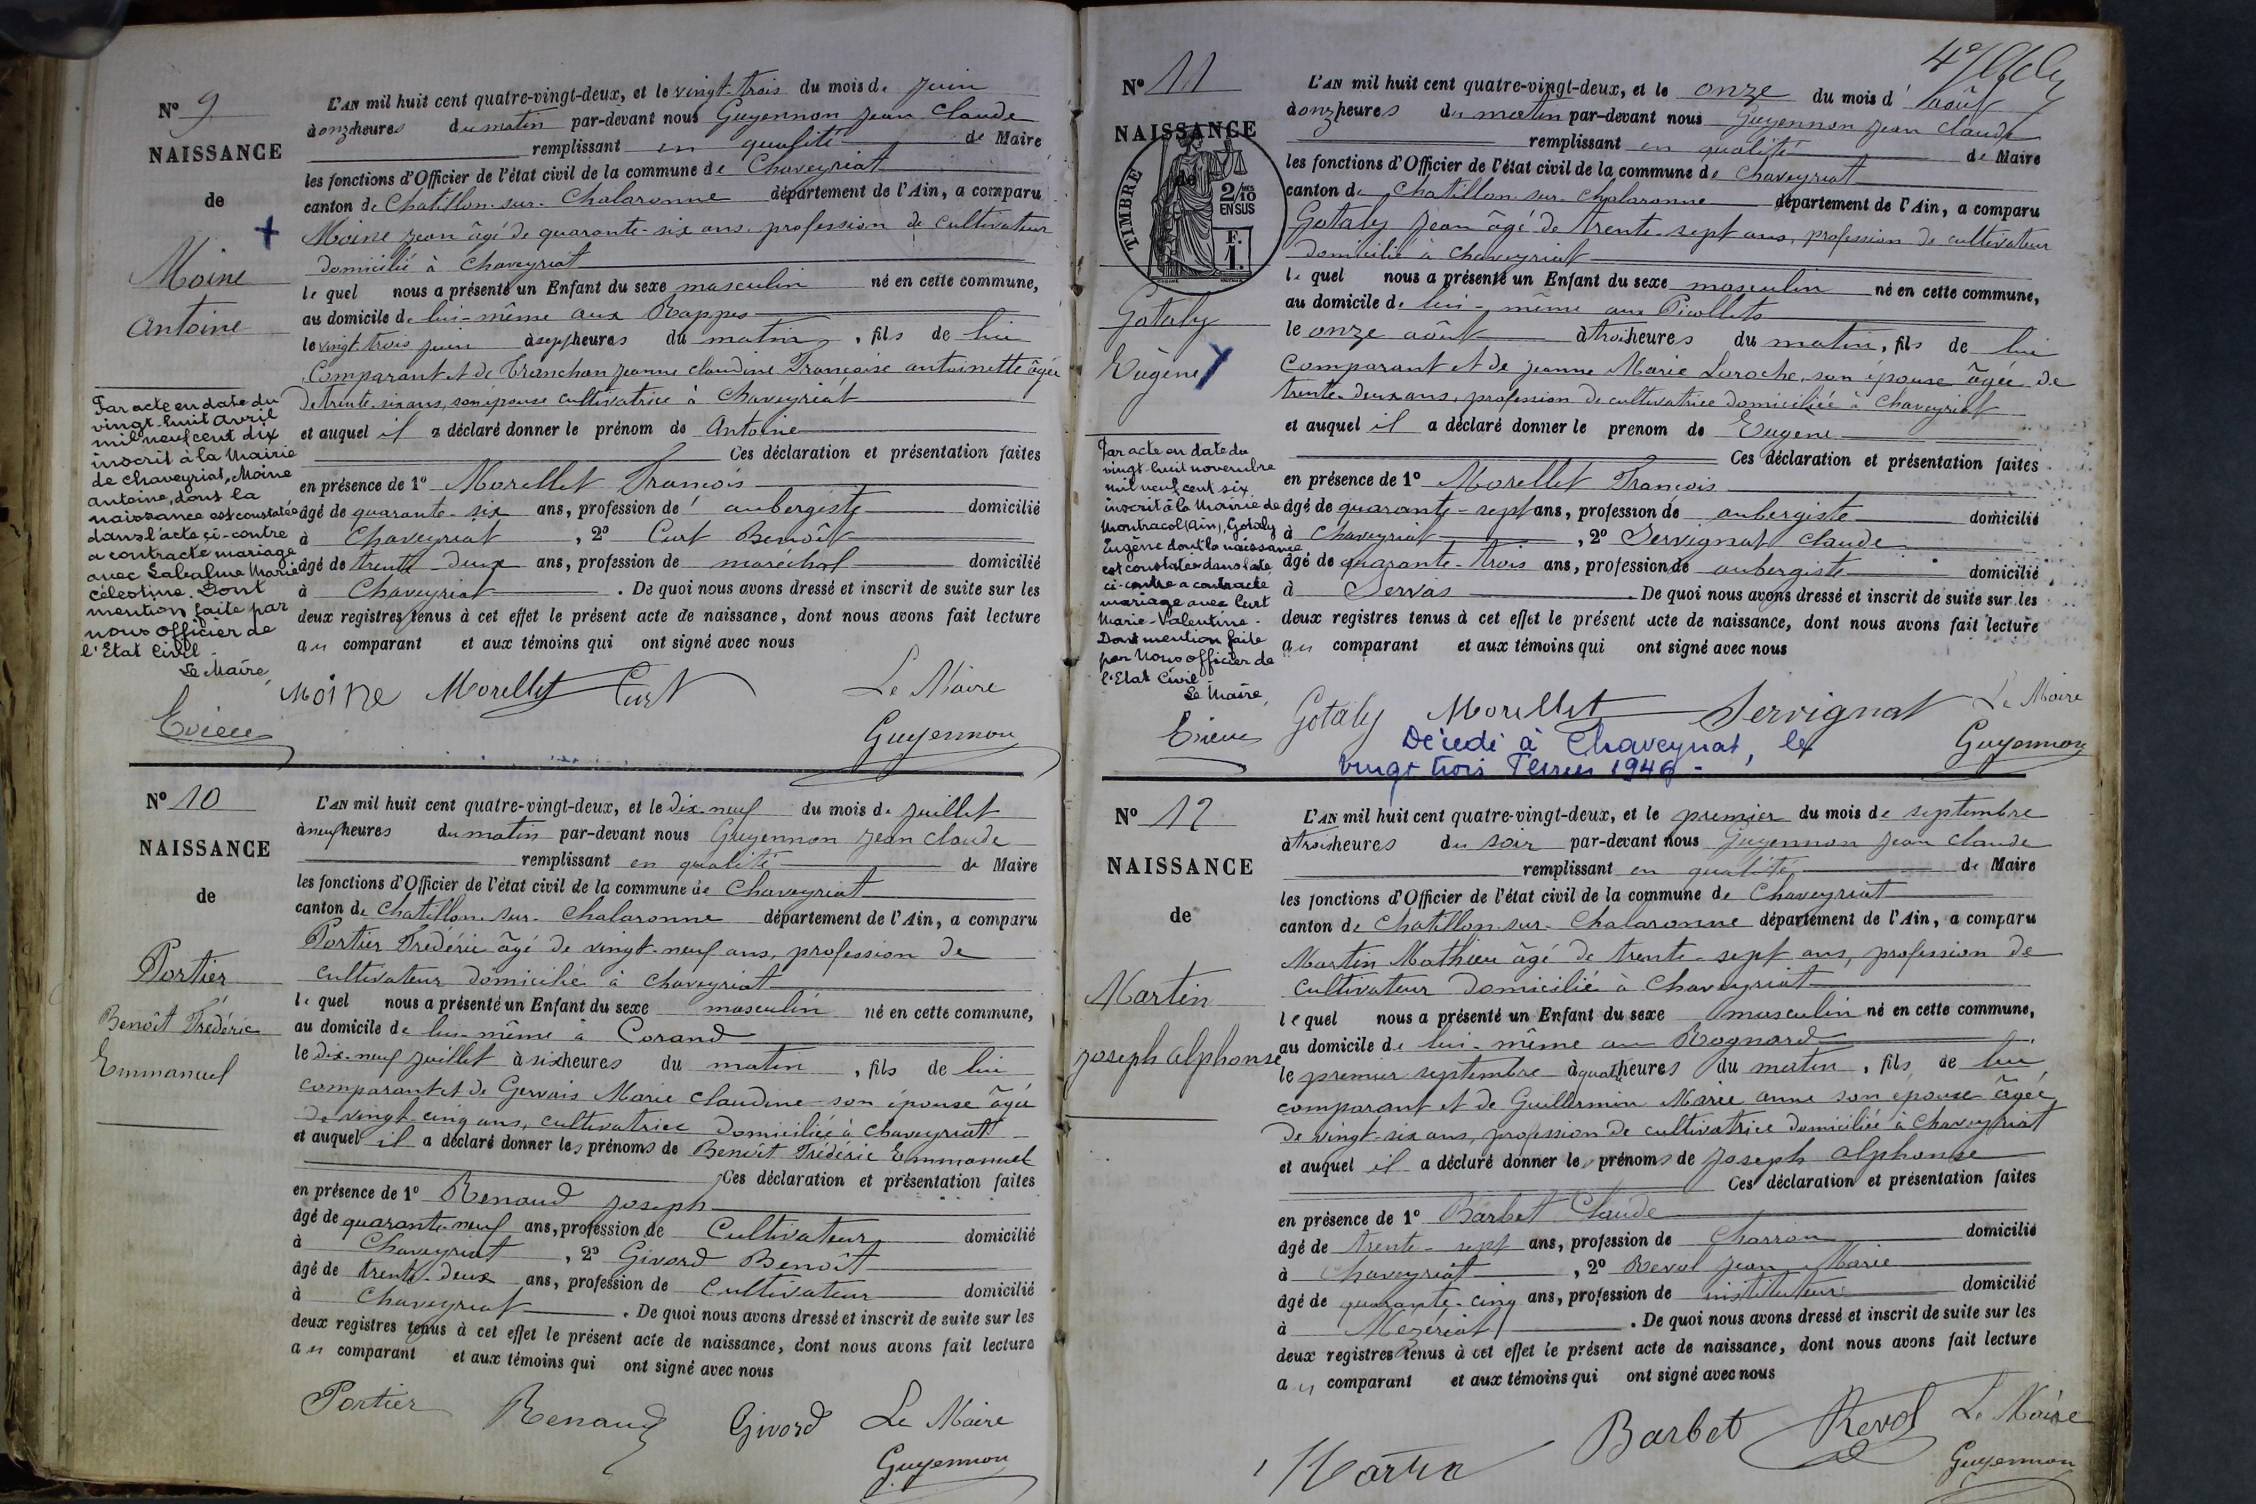 Nº 9
NAISSANCE
de
Moine
Antoine
Par acte en date du
vingt-huit Avril
mil neuf cent dix
inscrit à la Mairie
de Chaveyriat, Moine
Antoine, dont la
naissance est constatée
dans l'acte ci-contre
a contracté mariage
avec Marie
Célestine. Dont
mention faite par
nous officier de
l'Etat Civil.
Le Maire,
L'AN mil huit cent quatre-vingt-deux, et le vingt-trois du mois de juin
à onze heures du matin par-devant nous Guyennon Jean Claude
remplissant en qualité de Maire
les fonctions d'Officier de l'état civil de la commune de Chaveyriat
canton de Chatillon-sur-Chalaronne département de l'Ain, a comparu
Moine Jean âgé de quarante-six ans profession de cultivateur
domicilié à Chaveyriat
lequel nous a présenté un Enfant du sexe masculin né en cette commune,
au domicile de lui-même aux Rappes
le vingt-trois juin à sept heures du matin, fils de lui
Comparant et de Tranchan Jeanne Claudine Françoise antoinette âgée
de trente-six ans, son épouse cultivatrice à Chaveyriat
et auquel il a déclaré donner le prénom de Antoine
Ces déclaration et présentation faites
en présence de 1º Morellet François
âgé de quarante-six ans, profession d' aubergiste domicilié
à Chaveyriat, 2º Curt Benoît
âgé de trente-deux ans, profession de maréchal domicilié
à Chaveyriat. De quoi nous avons dressé et inscrit de suite sur les
deux registres tenus à cet effet le présent acte de naissance, dont nous avons fait lecture
au comparant et aux témoins qui ont signé avec nous
Moine Morellet Curt Le Maire
Guyennon
Nº 10
NAISSANCE
de
Portier
Benoît Frédéric
Emmanuel
L'AN mil huit cent quatre-vingt-deux, et le dix-neuf du mois de juillet
à neuf heures du matin par-devant nous Guyennon Jean Claude
remplissant en qualité de Maire
les fonctions d'Officier de l'état civil de la commune de Chaveyriat
canton de Chatillon-sur-Chalaronne département de l'Ain, a comparu
Portier Frédéric âgé de vingt-neuf ans, profession de
cultivateur domicilié à Chaveyriat
lequel nous a présenté un Enfant du sexe masculin né en cette commune,
au domicile de lui-même à Corand
le dix-neuf juillet à six heures du matin, fils de lui
comparant et de Gervais Marie Claudine son épouse âgée
de vingt-cinq ans, cultivatrice domiciliée à Chaveyriat
et auquel il a déclaré donner les prénoms de Benoît Frédéric Emmanuel
Ces déclaration et présentation faites
en présence de 1º Renaud Joseph
âgé de quarante-neuf ans, profession de Cultivateur domicilié
à Chaveyriat, 2º Givord Benoît
âgé de trente-deux ans, profession de Cultivateur domicilié
à Chaveyriat. De quoi nous avons dressé et inscrit de suite sur les
deux registres tenus à cet effet le présent acte de naissance, dont nous avons fait lecture
au comparant et aux témoins qui ont signé avec nous
Portier Renaud Givord Le Maire
Guyennon
Nº 11
NAISSANCE
de
TIMBRE
2/10 EN SUS
F.
1.
Gotaly
Eugène
Par acte en date du
vingt-huit novembre
mil neuf cent six
inscrit à la Mairie de
Montracol (Ain), Gotaly
Eugène dont la naissance
est constatée dans l'acte
ci-contre a contracté
mariage avec Curt
Marie-Valentine.
Dont mention faite
par Nous officier de
l'Etat Civil
Le Maire,
L'AN mil huit cent quatre-vingt-deux, et le onze du mois d' août
à onze heures du matin par-devant nous Guyennon Jean Claude
remplissant en qualité de Maire
les fonctions d'Officier de l'état civil de la commune de Chaveyriat
canton de Chatillon-sur-Chalaronne département de l'Ain, a comparu
Gotaly Jean âgé de trente-sept ans, profession de cultivateur
domicilié à Chaveyriat
lequel nous a présenté un Enfant du sexe masculin né en cette commune,
au domicile de lui-même aux Picollets
le onze août à trois heures du matin, fils de lui
comparant et de Jeanne Marie Laroche, son épouse âgée de
trente-deux ans, profession de cultivatrice domiciliée à Chaveyriat
et auquel il a déclaré donner le prenom de Eugene
Ces déclaration et présentation faites
en présence de 1º Morellet François
âgé de quarante-sept ans, profession de aubergiste domicilié
à Chaveyriat, 2º Servignat Claude
âgé de quarante-trois ans, profession de aubergiste domicilié
à Servas. De quoi nous avons dressé et inscrit de suite sur les
deux registres tenus à cet effet le présent acte de naissance, dont nous avons fait lecture
au comparant et aux témoins qui ont signé avec nous
Gotaly Morellet Servignat Le Maire
Guyennon
Décédé à Chaveyriat, le
vingt trois Février 1946 -
Nº 12
NAISSANCE
de
Martin
Joseph Alphonse
L'AN mil huit cent quatre-vingt-deux, et le premier du mois de septembre
à trois heures du soir par-devant nous Guyennon Jean Claude
remplissant en qualité de Maire
les fonctions d'Officier de l'état civil de la commune de Chaveyriat
canton de Chatillon-sur-Chalaronne département de l'Ain, a comparu
Martin Mathieu âgé de trente-sept ans, profession de
cultivateur domicilié à Chaveyriat
lequel nous a présenté un Enfant du sexe masculin né en cette commune,
au domicile de lui-même au Rognard
le premier septembre à quatre heures du matin, fils de lui
comparant et de Guillermin Marie anne son épouse âgée
de vingt-six ans, profession de cultivatrice domiciliée à Chaveyriat
et auquel il a déclaré donner les prénoms de Joseph alphonse
Ces déclaration et présentation faites
en présence de 1º Barbet Claude
âgé de trente-sept ans, profession de Charron domicilié
à Chaveyriat, 2º Revol Jean Marie
âgé de quarante-cinq ans, profession de instituteur domicilié
à Mezeriat. De quoi nous avons dressé et inscrit de suite sur les
deux registres tenus à cet effet le présent acte de naissance, dont nous avons fait lecture
au comparant et aux témoins qui ont signé avec nous
Martin Barbet Revol Le Maire
Guyennon